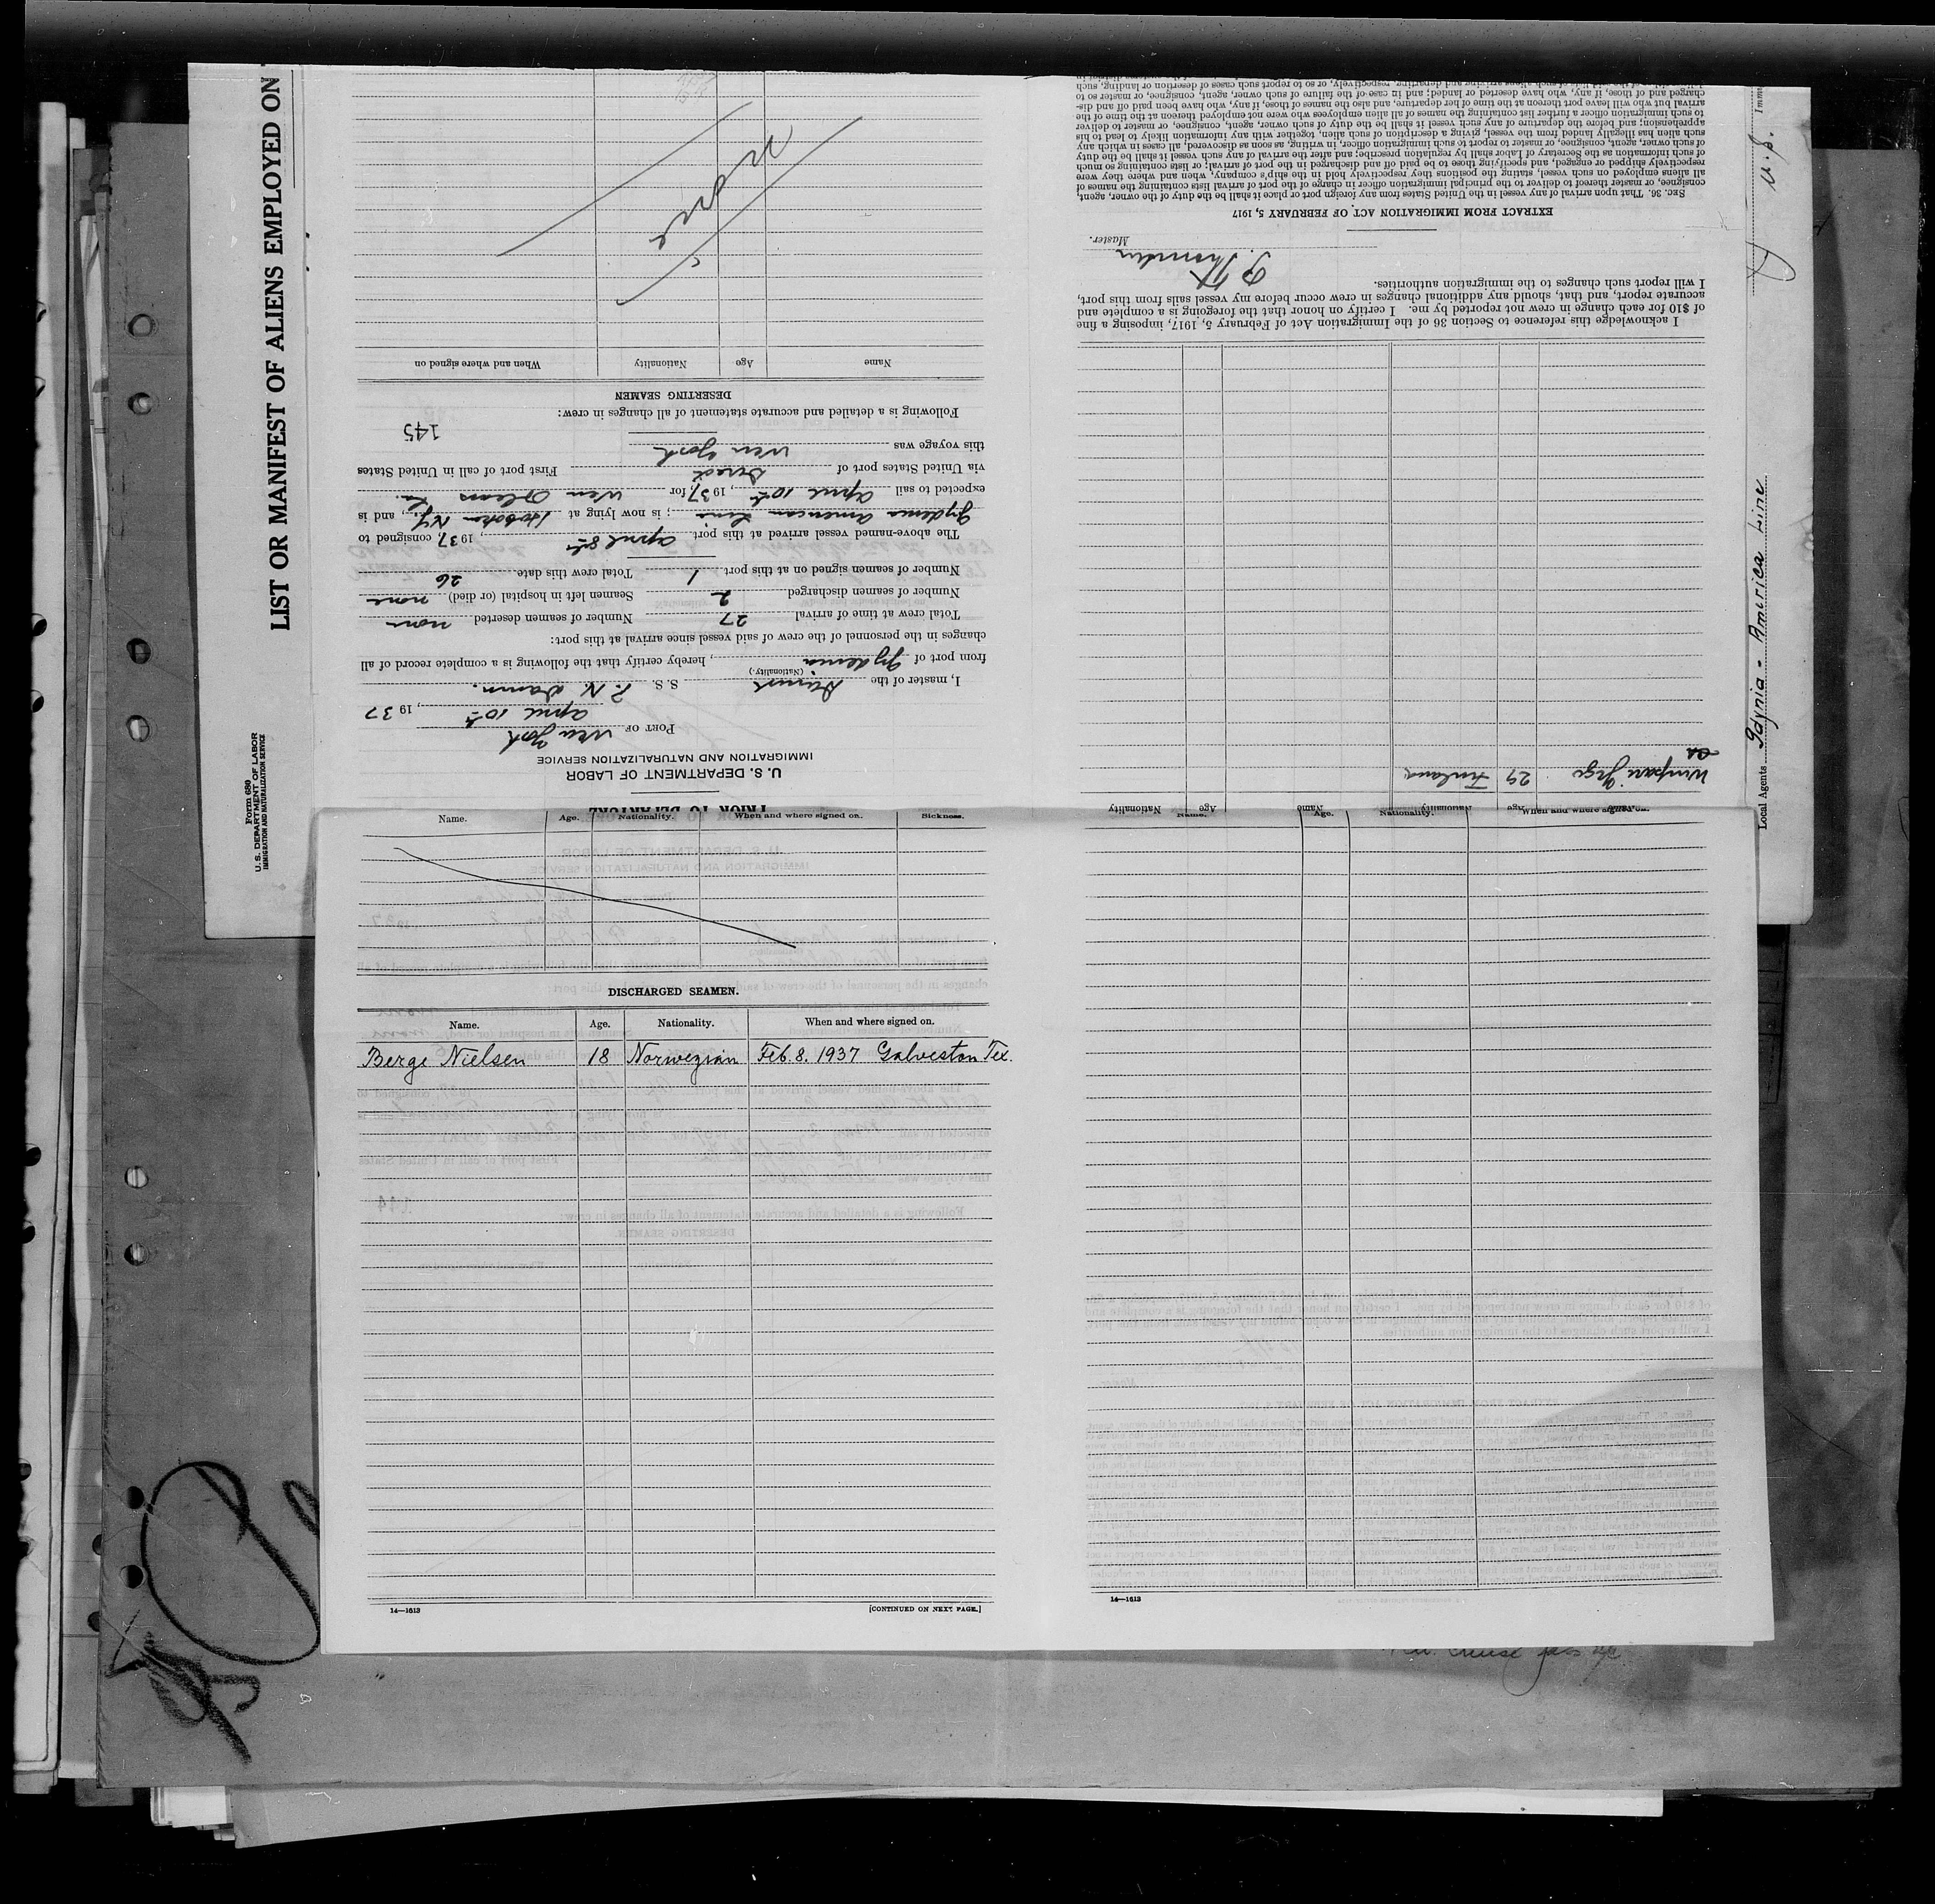 LIST OR MANIFEST OF ALIENS EMPLOYED ON
Form 680
U. S. DEPARTMENT OF LABOR
IMMIGRATION AND NATURALIZATION SERVICE
U. S. DEPARTMENT OF LABOR
IMMIGRATION AND NATURALIZATION SERVICE
PORT OF New York
April 10th, 1937
I, master of the Danish S. S. P. N. Damm.
(Nationality.)
from port of Gydenia, hereby certify that the following is a complete record of all
changes in the personnel of the crew of said vessel since arrival at this port:
Total crew at time of arrival 27 Number of seamen deserted none
Number of seamen discharged 2 Seamen left in hospital (or died) none
Number of seamen signed on at this port 1 Total crew this date 26
The above-named vessel arrived at this port April 8th, 1937, consigned to
Gydenia American Line; is now lying at Hoboken N.J., and is
expected to sail April 10th, 1937, for New Orleans La.
via United States port of Direct First port of call in United States
this voyage was New York
145
Following is a detailed and accurate statement of all changes in crew:
DESERTING SEAMEN
Name Age Nationality When and where signed on
none
Name Age Nationality Name Age Nationality
29 Finland
I acknowledge this reference to Section 36 of the Immigration Act of February 5, 1917, imposing a fine
of $10 for each change in crew not reported by me. I certify on honor that the foregoing is a complete and
accurate report, and that, should any additional changes in crew occur before my vessel sails from this port,
I will report such changes to the immigration authorities.
Master.
EXTRACT FROM IMMIGRATION ACT OF FEBRUARY 5, 1917
SEC. 36. That upon arrival of any vessel in the United States from any foreign port or place it shall be the duty of the owner, agent,
consignee, or master thereof to deliver to the principal immigration officer in charge of the port of arrival lists containing the names of
all aliens employed on such vessel, stating the positions they respectively hold in the ship's company, when and where they were
respectively shipped or engaged, and specifying those to be paid off and discharged in the port of arrival; or lists containing so much
of such information as the Secretary of Labor shall by regulation prescribe; and after the arrival of any such vessel it shall be the duty
of such owner, agent, consignee, or master to report to such immigration officer, in writing, as soon as discovered, all cases in which any
such alien has illegally landed from the vessel, giving a description of such alien, together with any information likely to lead to his
apprehension; and before the departure of any such vessel it shall be the duty of such owner, agent, consignee, or master to deliver
to such immigration officer a further list containing the names of all alien employees who were not employed thereon at the time of the
arrival but who will leave port thereon at the time of her departure, and also the names of those, if any, who have been paid off and dis-
charged and of those, if any, who have deserted or landed; and in case of the failure of such owner, agent, consignee, or master so to
Local Agents Gdynia - America Line
Name. Age. Nationality. When and where signed on. Sickness.
DISCHARGED SEAMEN.
Name. Age. Nationality. When and where signed on.
Berge Nielsen 18 Norwegian Feb. 8. 1937 Galveston Tex.
14—1613 [CONTINUED ON NEXT PAGE.]
Name. Age. Nationality. When and where signed on.
14—1613